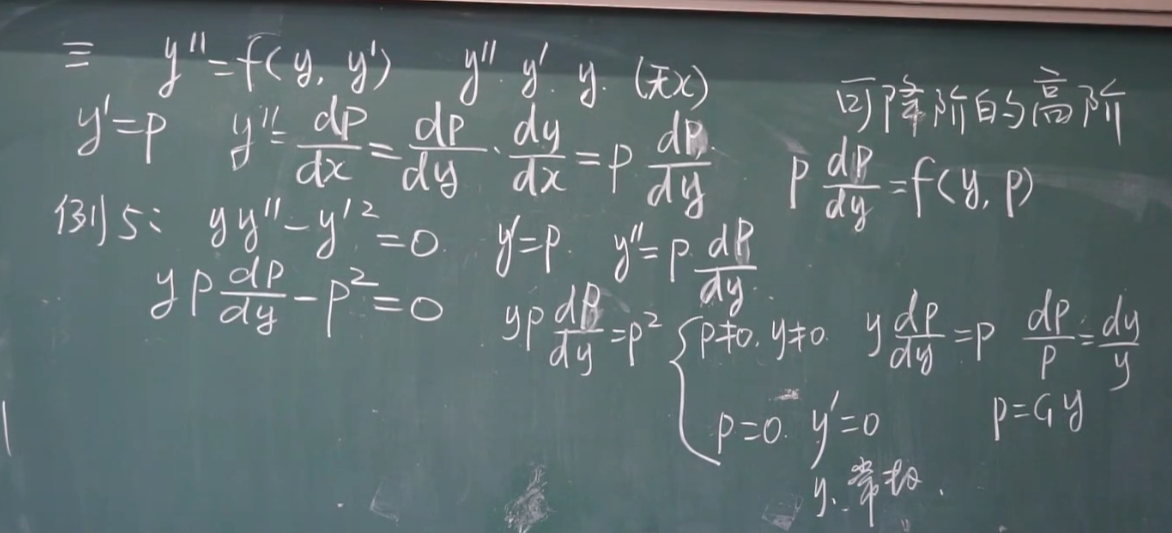 三 y''=f(y, y') y''. y'. y. (无x)
可降阶的高阶
y'=p y''=dp/dx=dp/dy·dy/dx=p dp/dy. p dp/dy=f(y, p)
例5: yy''-y'²=0. y'=p. y''=p dp/dy.
yp dp/dy-p²=0 yp dp/dy=p² { p≠0. y≠0. y dp/dy=p dp/p=dy/y
p=0. y'=0 p=C₁y
y. 常数.